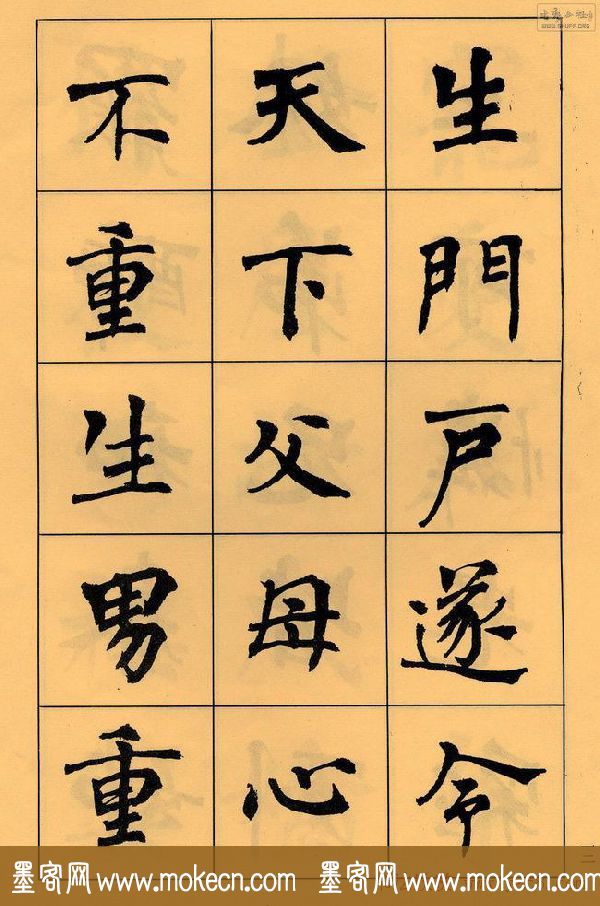 生門户遂令
天下父母心
不重生男重
二
墨客网 www.mokecn.com 墨客网 www.mokecn.com